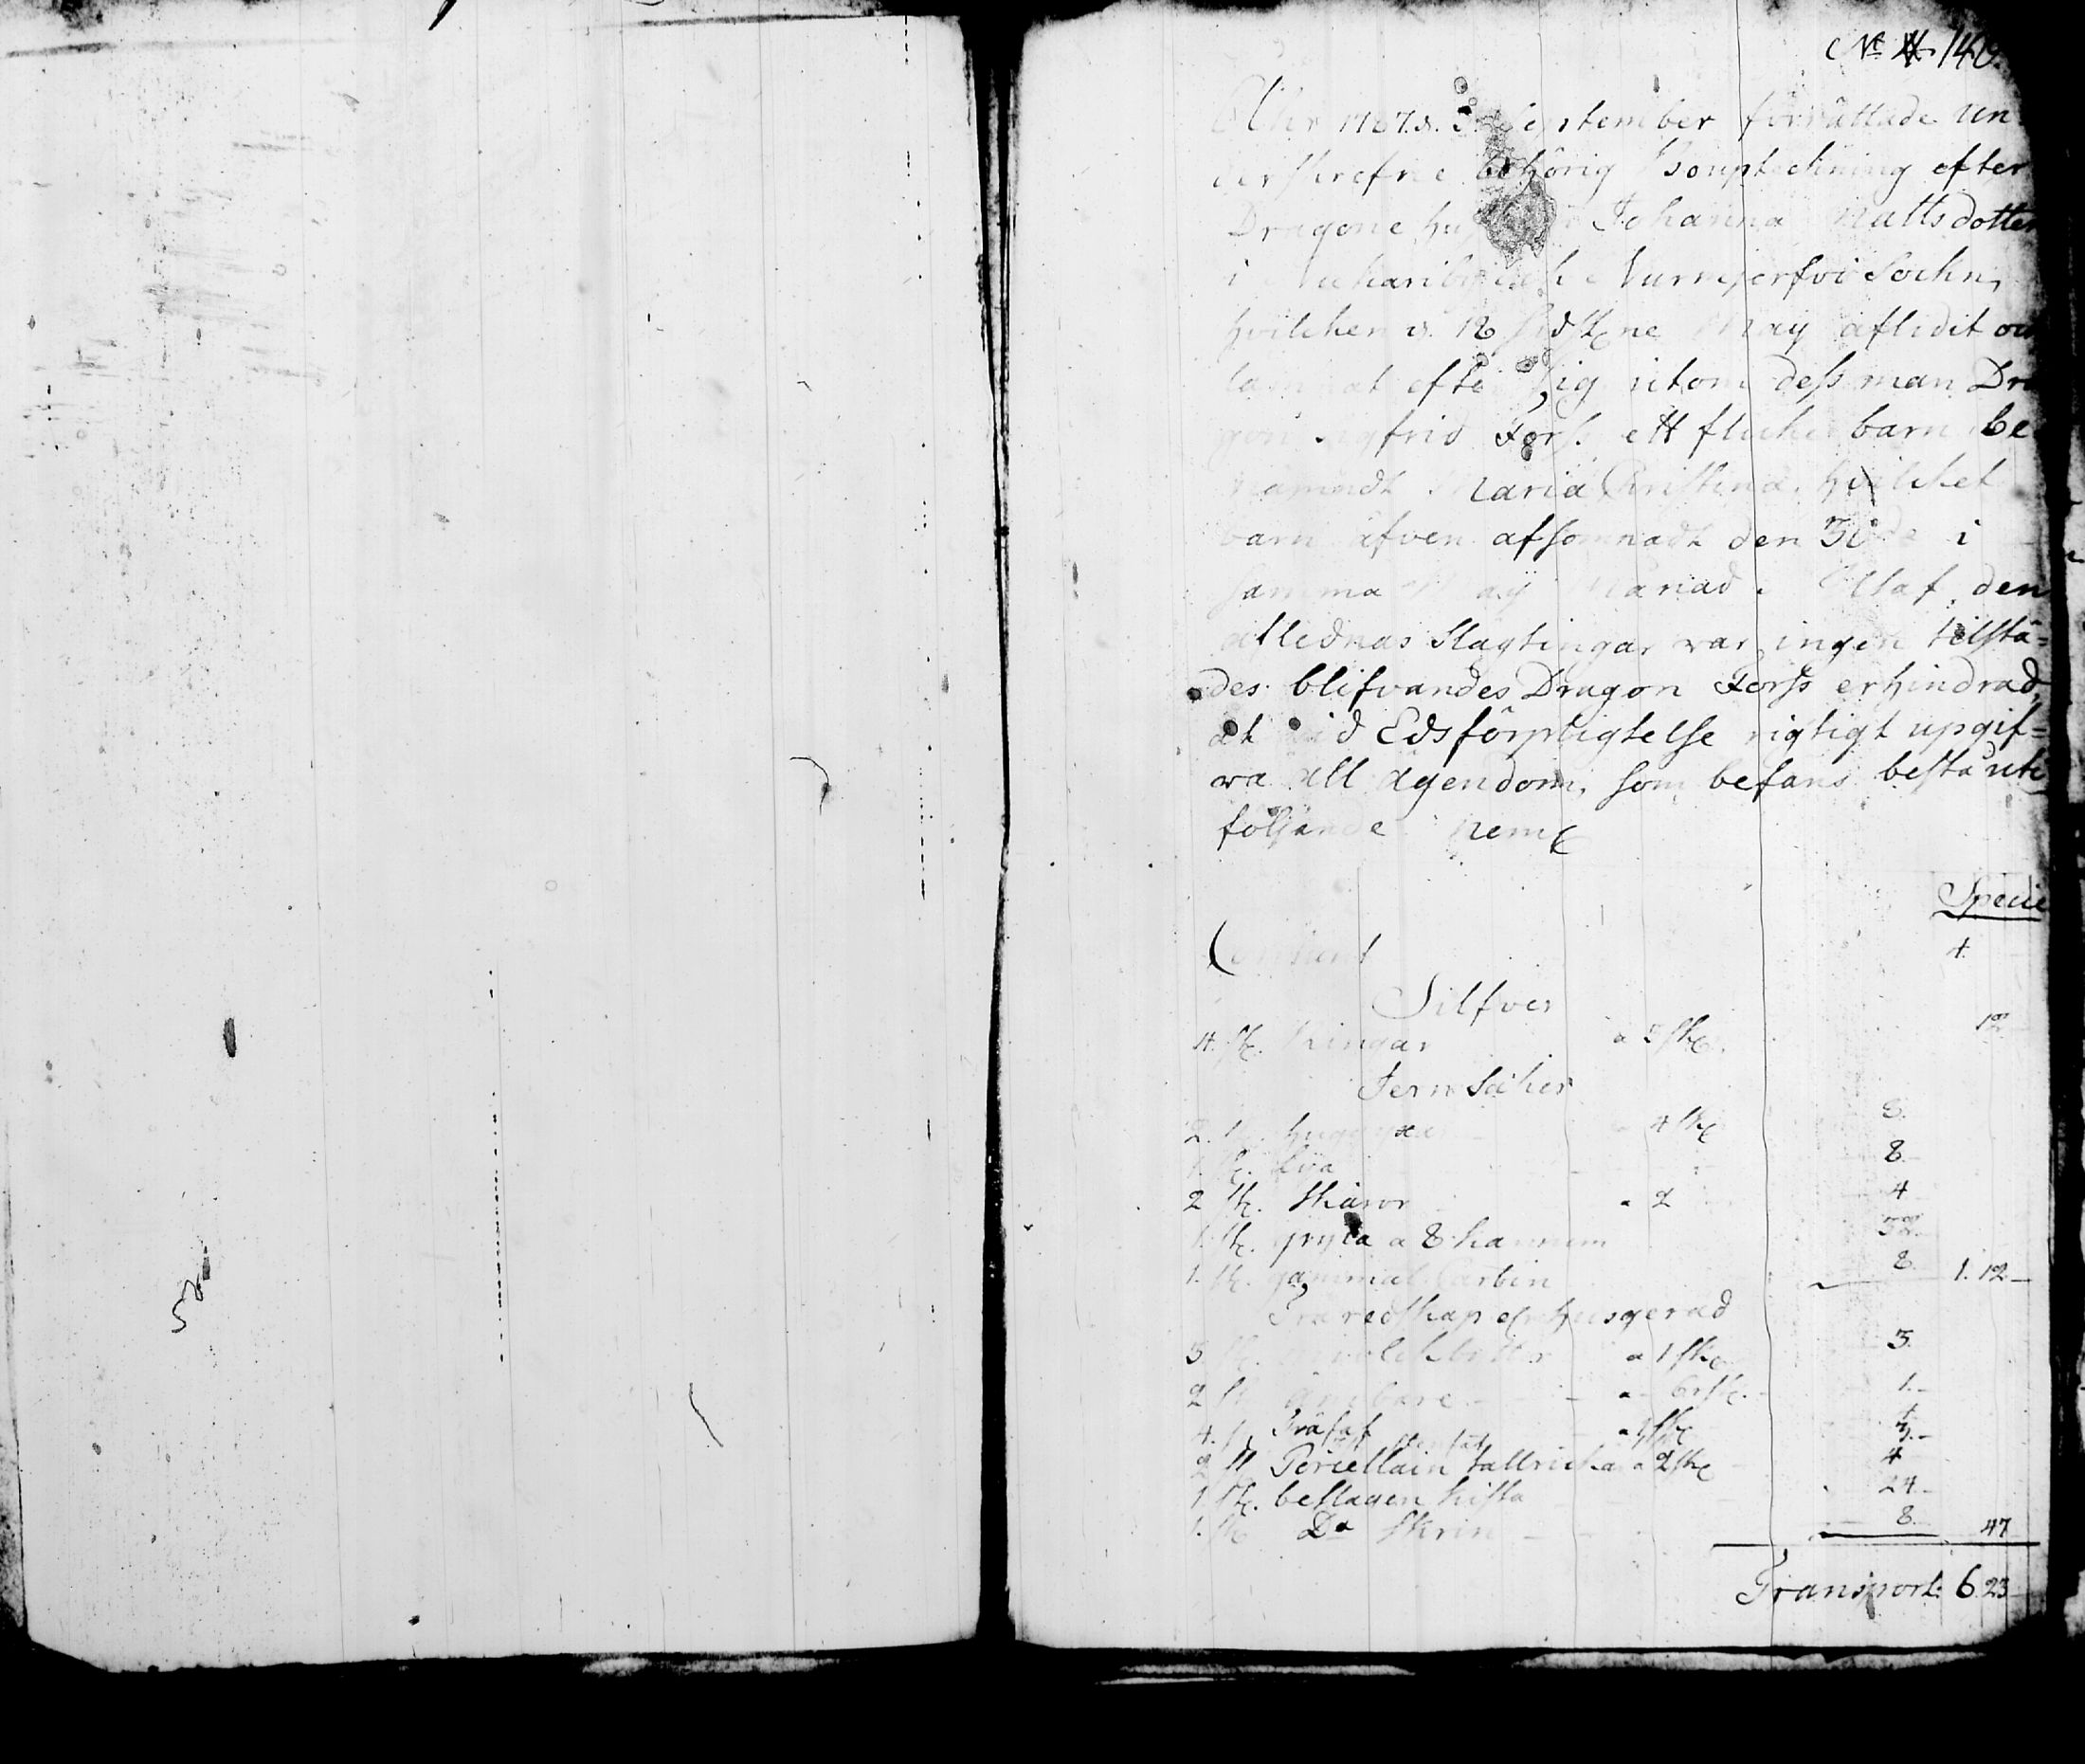 No 140.
Åhr 1787. d. 3. September förrättade un
derskrefne behörig Bouptekning efter
Dragone hu Johanna Mattsdotter
i Nurmijerfvi Sochn,
hvilcken d. 12 sidstne May aflidit och
lämnat efter sig utom dess man Dra
gon Sigfrid Forss. ett flicke barn be
nämndt Maria Christina, hvilcket
barn äfven afsomnadt den 30de i
samma May Månad. Utaf den
aflednas Slägtingar war ingen tilstä=
des blifvandes Dragon Forss erhindrad,
at vid Edsförpligtelse rigtigt upgif=
wa all ägendom, som befans bestå uti
följande nemL
Specie
Contant 4.
Silfver
4. st. Ringar a 3 sk. 12
Jern Saker
2. st. huggyxar a 4 sk 8.
1. st. Lia 8.
2 st. Skäror a 2 4
1. st. gryta a 8 kannim 32.
1. st. gammal Carbin 8. 1. 12
Träredskap och Husgeråd
3 st. miölckbyttor a 1 sk 3.
2 st. ämbare a 6 rst. 1.
4. st Träfat
2 st Porcellain tallrickar a 2 sk 4
1 st. beslagen kista 24.
1. st Do Skrin 8. 47
Transport: 6.23